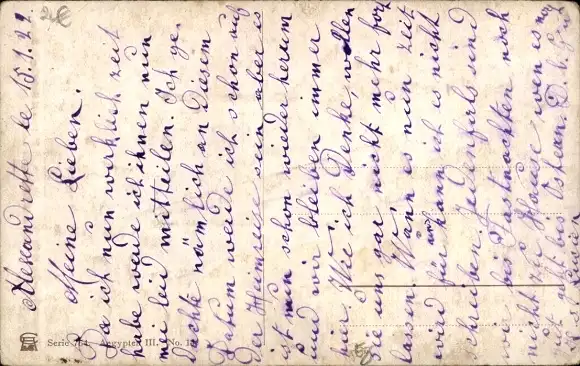 Alexandrette le 15.1.22.
Meine Lieben.
Da ich nun werklich zeit
habe werde ich ihnen nun
mei leid mitteilen. Ich ge-
dachte nämlich an diesem
Datum werde ich schon auf
Der Heimreise sein aber es
ist nun schon wieder herum
und wir bleiben immer
hir. Wie ich Denke, wollen
sie uns gar nicht mehr fort
lassen. Wann es nun zeit
wird für kann ist es nicht
schrieben. Jedenfalls sind
wir bis Fastnachten noch
nicht zu Hause wen es
geht bis Ostern. D. b.
Serie 714. Aegypten III. No. 1
2€